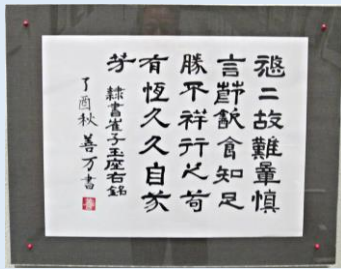 悠二故難量慎
言節飲食知足
勝不祥行之苟
有恆久久自芬
芳 隸書崔子玉座右銘
丁酉秋 善万書